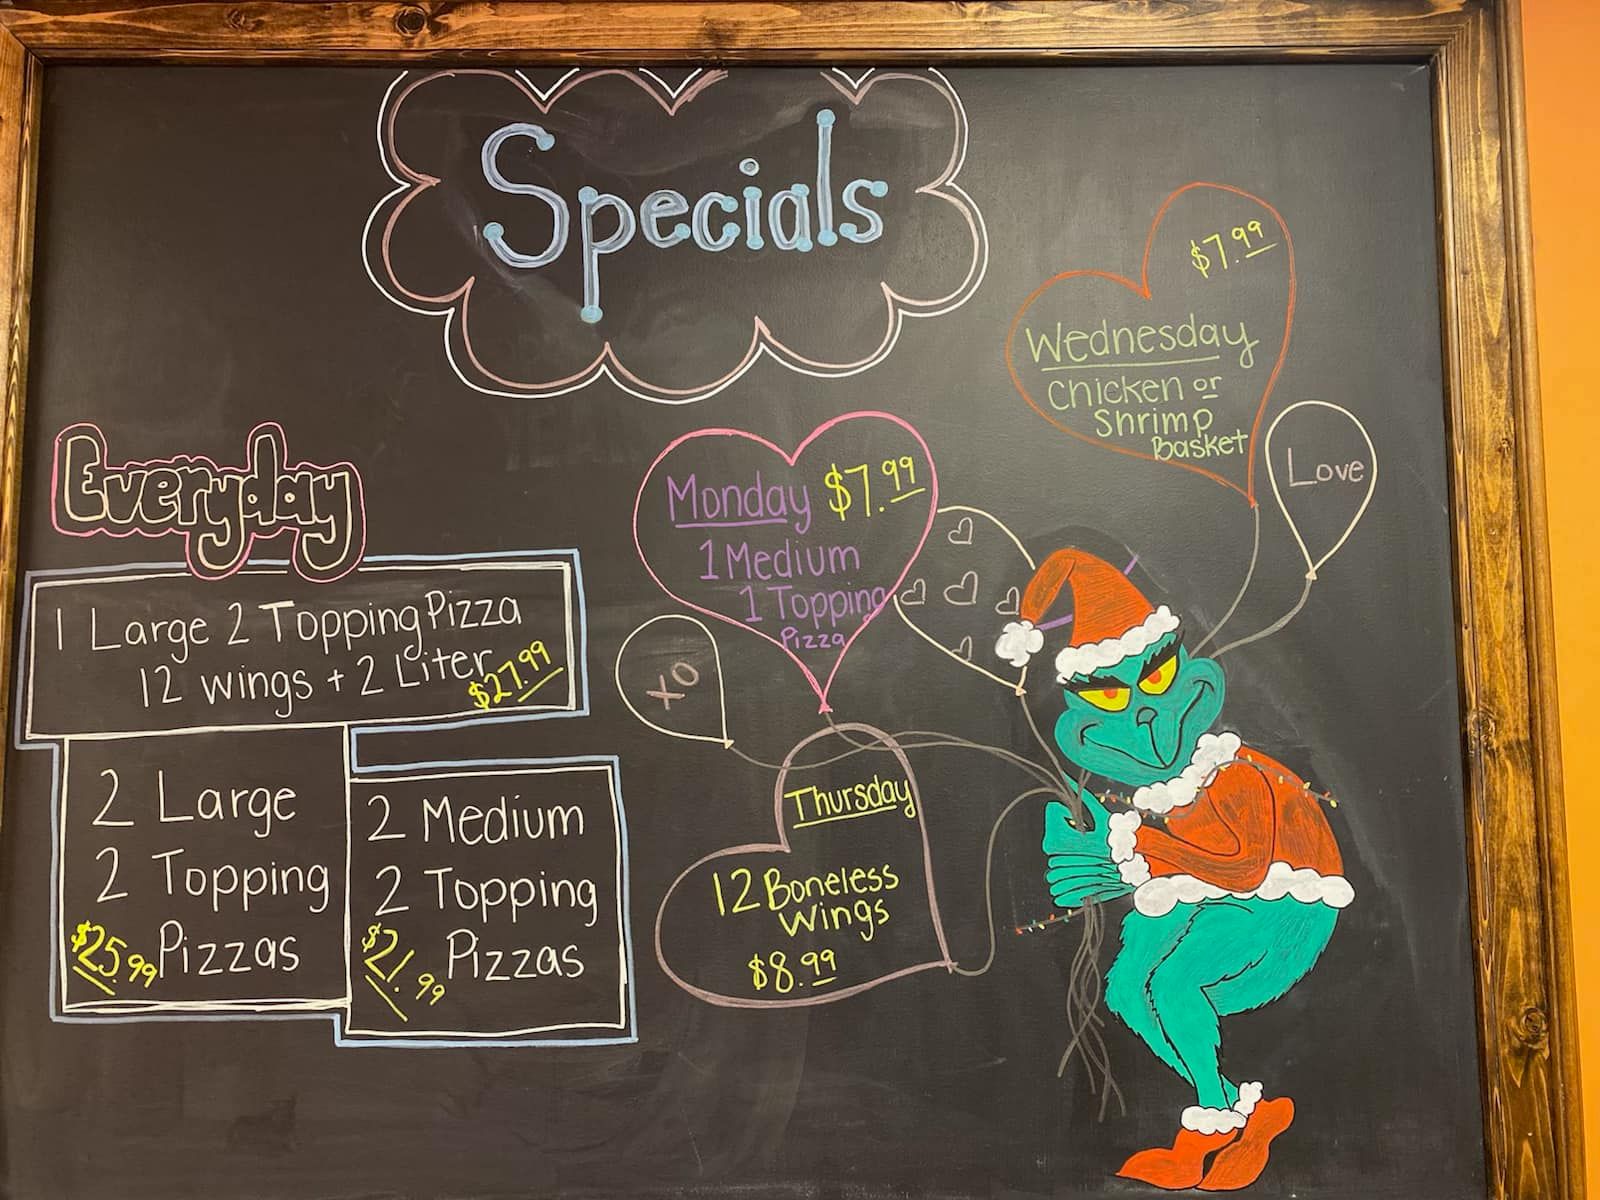 Specials
Everyday
1 Large 2 Topping Pizza
12 wings + 2 Liter
$27.99
2 Large
2 Topping
Pizzas
$25.99
2 Medium
2 Topping
Pizzas
$21.99
Monday $7.99
1 Medium
1 Topping
Pizza
XO
$7.99
Wednesday
Chicken or
Shrimp
Basket
Love
Thursday
12 Boneless
Wings
$8.99